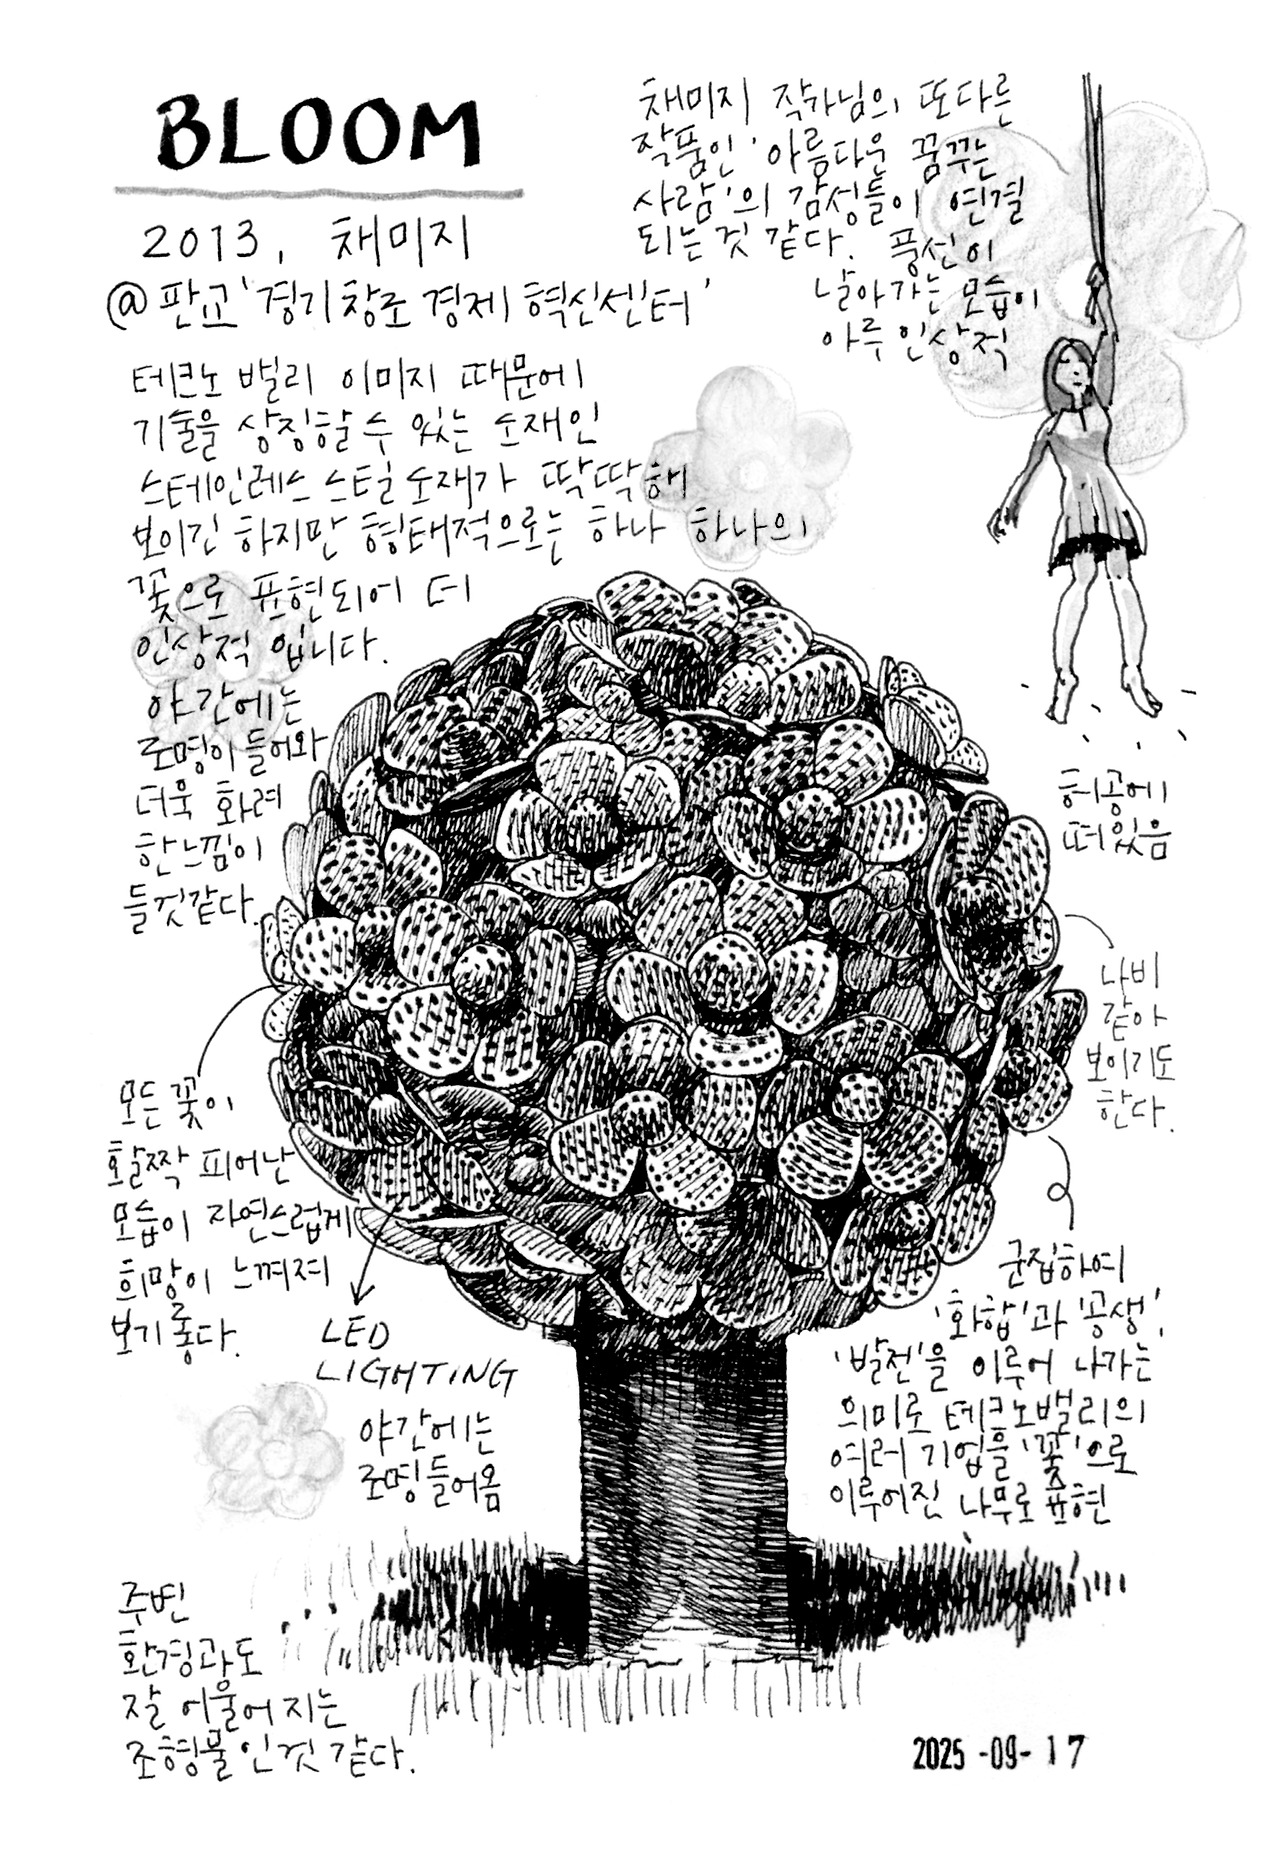 BLOOM
2013, 채미지
@ 판교 '경기창조경제혁신센터'
테크노 밸리 이미지 때문에
기술을 상징할 수 있는 소재인
스테인레스 스틸 소재가 딱딱해
보이긴 하지만 형태적으로는 하나 하나의
꽃으로 표현되어 더
인상적 입니다.
야간에는
조명이 들어와
더욱 화려
한 느낌이
들것 같다.
채미지 작가님의 또다른
작품인 '아름다운 꿈꾸는
사람'의 감성들이 연결
되는 것 같다. 풍선이
날아가는 모습이
아주 인상적
허공에
떠있음
나비
같아
보이기도
한다.
모든 꽃이
활짝 피어난
모습이 자연스럽게
희망이 느껴져
보기 좋다.
LED
LIGHTING
야간에는
조명들어옴
군집하여
'화합'과 '공생',
'발전'을 이루어 나가는
의미로 테크노밸리의
여러 기업을 '꽃'으로
이루어진 나무로 표현
주변
환경과도
잘 어울어 지는
조형물 인것 같다.
2025 -09- 17